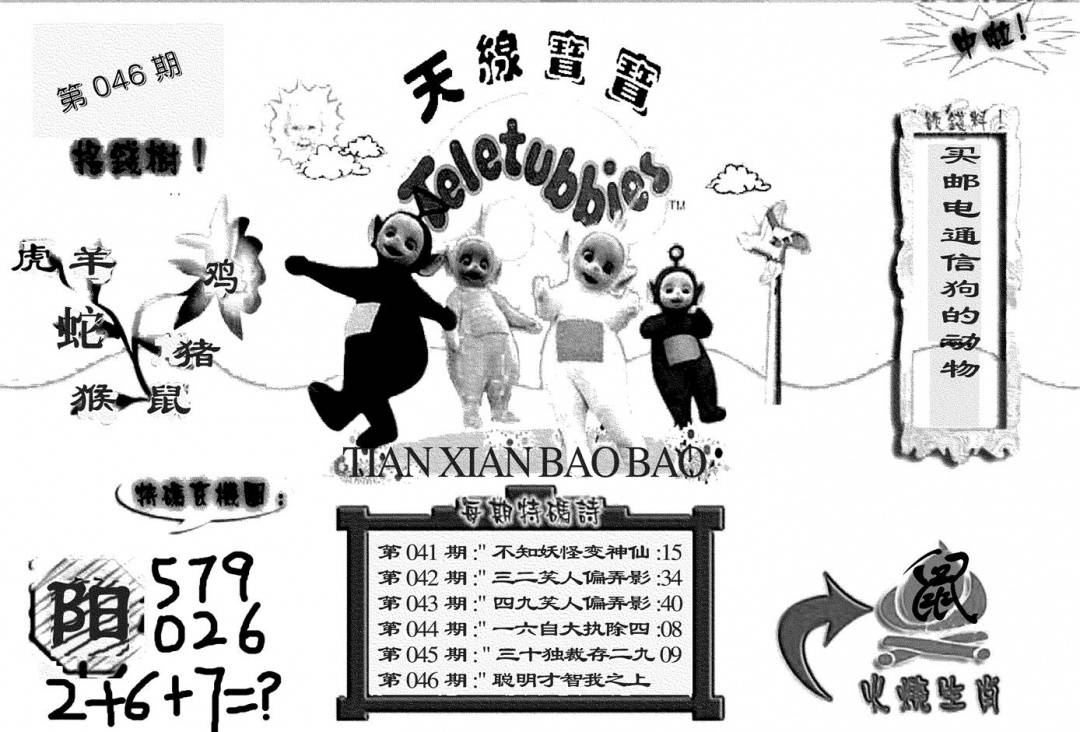 第 046 期
中啦！
天線寶寶
Teletubbies
TM
搖錢樹！
虎 羊
鸡
蛇
猪
猴 鼠
买邮电通信狗的动物
TIAN XIAN BAO BAO
每期特碼詩
第 041 期 :" 不知妖怪变神仙 :15
第 042 期 :" 三二笑人偏弄影 :34
第 043 期 :" 四九笑人偏弄影 :40
第 044 期 :" 一六自大执除四 :08
第 045 期 :" 三十独裁存二九 09
第 046 期 :" 聪明才智我之上
特碼玄機圖：
阳
579
026
2+6+7=?
鼠
火燒生肖